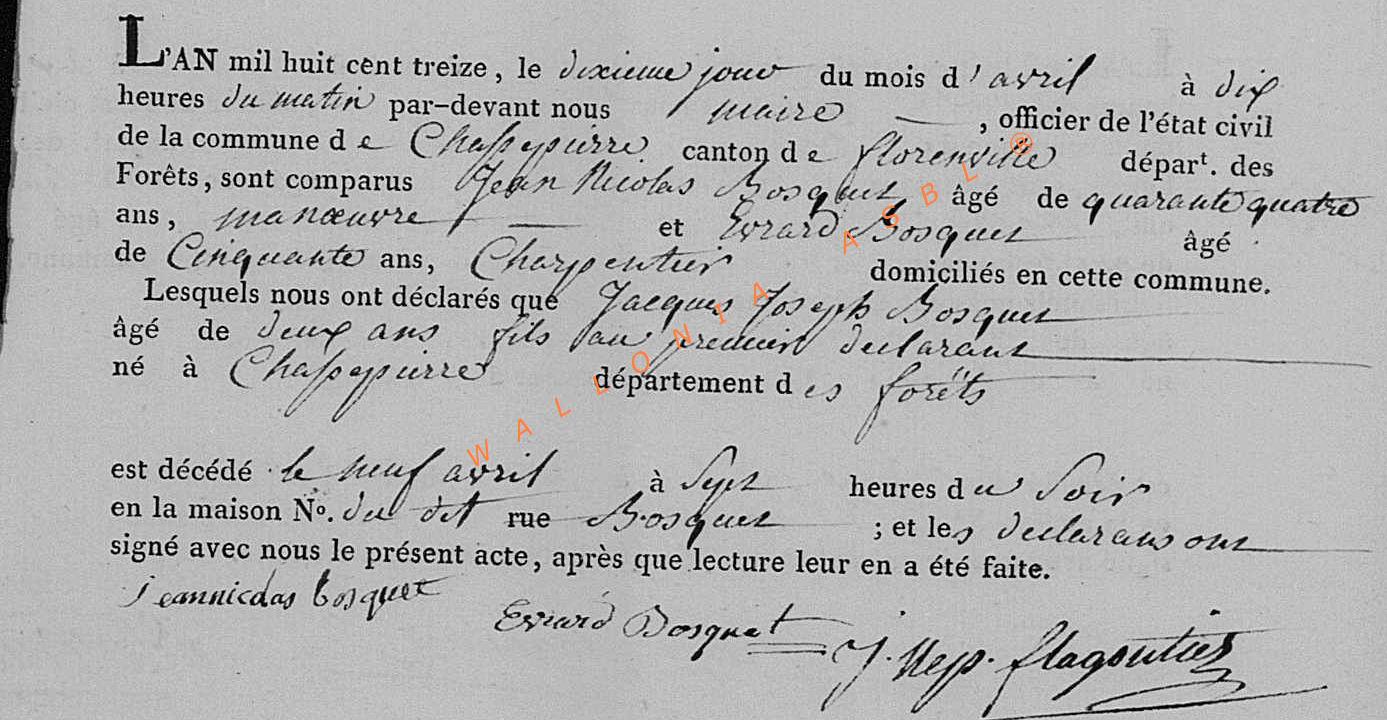 L'AN mil huit cent treize, le dixieme jour du mois d'avril à dix
heures du matin par-devant nous maire, officier de l'état civil
de la commune de Chassepierre canton de florenville départ. des
Forêts, sont comparus Jean Nicolas Bosquet âgé de quarante quatre
ans, manœuvre et Evrard Bosquet âgé
de Cinquante ans, Charpentier domiciliés en cette commune.
Lesquels nous ont déclarés que Jacques Joseph Bosquet
âgé de deux ans fils au premier declarant
né à Chassepierre département des forêts
est décédé le neuf avril à Sept heures du Soir
en la maison No. du dit rue Bosquet ; et les declarans ont
signé avec nous le présent acte, après que lecture leur en a été faite.
jeannicolas bosquet
Evrard Bosquet
J. flagontier
WALLONIA ASBL ®